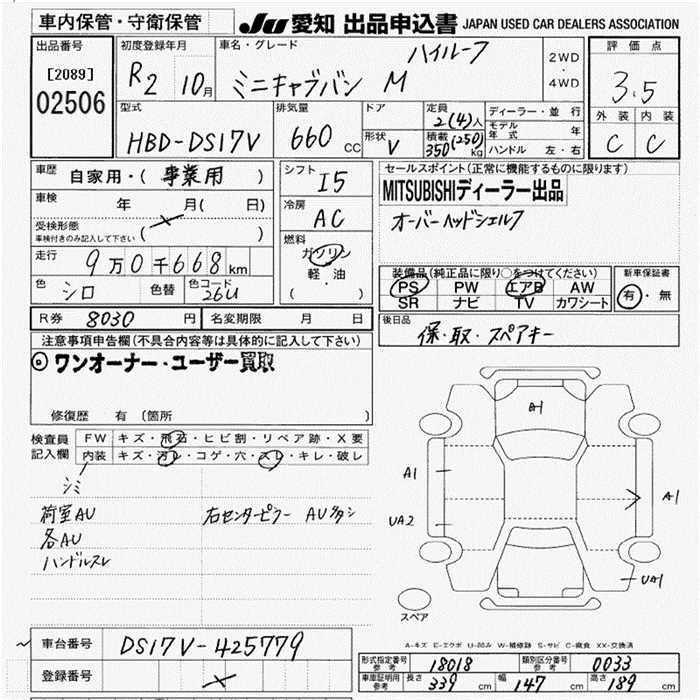 車内保管・守衛保管
JU 愛知 出品申込書 JAPAN USED CAR DEALERS ASSOCIATION
出品番号
[2089]
02506
初度登録年月
R2 10月
車名・グレード
ハイルーフ
ミニキャブバン M
2WD
・
4WD
評価点
3.5
外装 内装
C C
型式
HBD-DS17V
排気量
660 CC
ドア
形状 V
定員
2(4)人
積載 350(250)kg
ディーラー・並行
モデル年式 年
ハンドル 左・右
車歴
自家用・( 事業用 )
車検
年 月( 日)
受検形態
車検付きのみ記入して下さい ( )
走行
9万0千668km
色
シロ
色替
色コード
26U
シフト
I5
冷房
AC
燃料
ガソリン
軽・油
( )
セールスポイント(正常に機能するものに限ります)
MITSUBISHIディーラー出品
オーバーヘッドシェルフ
装備品(純正品に限り○をつけてください)
PS PW エアB AW
SR ナビ TV カワシート
新車保証書
有・無
R券 8030 円
名変期限 月 日
後日品
保・取・スペアキー
注意事項申告欄(不具合内容等は具体的に記入して下さい)
◎ワンオーナー・ユーザー買取
修復歴 有 (箇所 )
検査員記入欄
FW キズ・飛石・ヒビ割・リペア跡・X要
内装 キズ・汚レ・コゲ・穴・スレ・キレ・破レ
シミ
荷室AU
各AU
ハンドルスレ
右センターピラー AU多シ
A1
A1
UA2
A1
UA1
スペア
A-キズ E-エクボ U-凹み W-補修跡 S-サビ C-腐食 XX-交換済
車台番号 DS17V-425779
登録番号
形式指定番号 参考 18018
類別区分番号 参考 0033
車庫証明用 参考 長さ 339 cm 幅 147 cm 高さ 189 cm